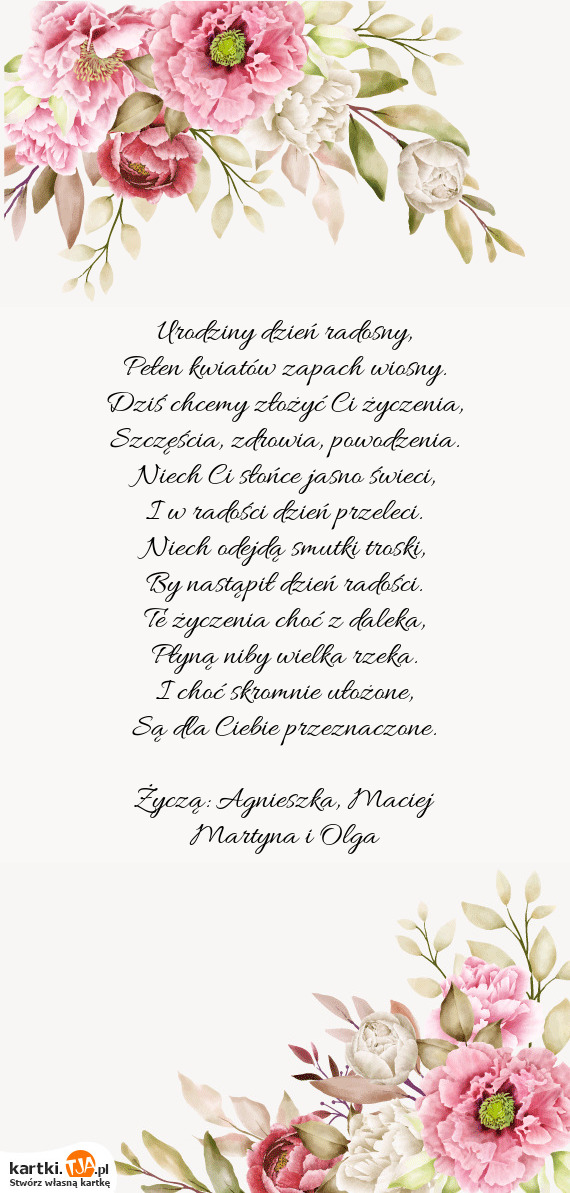 Urodziny dzień radosny,
Pełen kwiatów zapach wiosny.
Dziś chcemy złożyć Ci życzenia,
Szczęścia, zdrowia, powodzenia.
Niech Ci słońce jasno świeci,
I w radości dzień przeleci.
Niech odejdą smutki troski,
By nastąpił dzień radości.
Te życzenia choć z daleka,
Płyną niby wielka rzeka.
I choć skromnie ułożone,
Są dla Ciebie przeznaczone.
Życzą: Agnieszka, Maciej
Martyna i Olga
kartki.TJA.pl
Stwórz własną kartkę